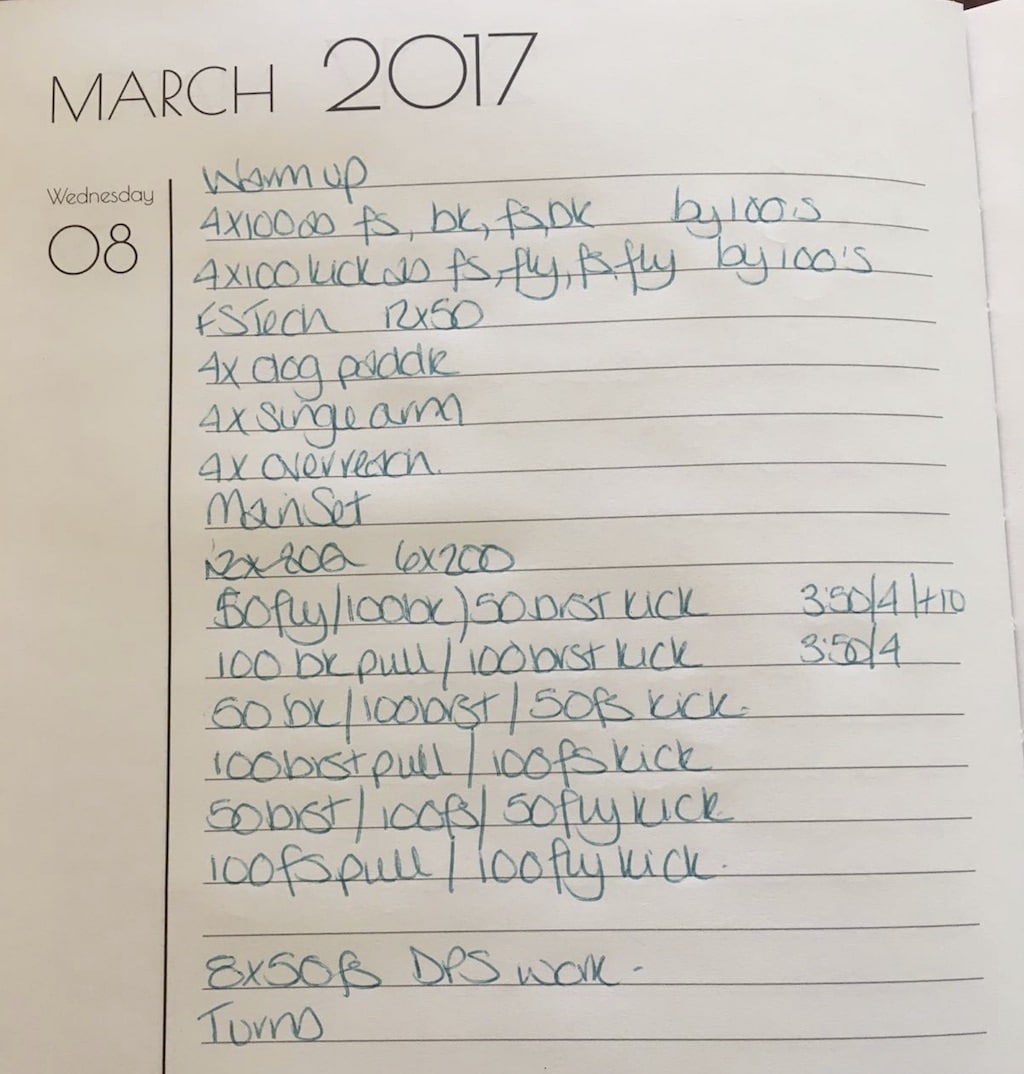 MARCH 2017
Wednesday
08
Warm up
4x100 as fs, bk, fs, bk by 100's
4x100 kick as fs, fly, fs, fly by 100's
FSTech 12x50
4x dog paddle
4x single arm
4x overreach.
Main Set
12x200 6x200
50fly/100bk/50brst kick 3:50/4/+10
100 bk pull/100brst kick 3:50/4
50 bk/100brst/50fs kick.
100brst pull/100fs kick
50brst/100fs/50fly kick
100fs pull/100fly kick.
8x50fs DPS work.
Turns